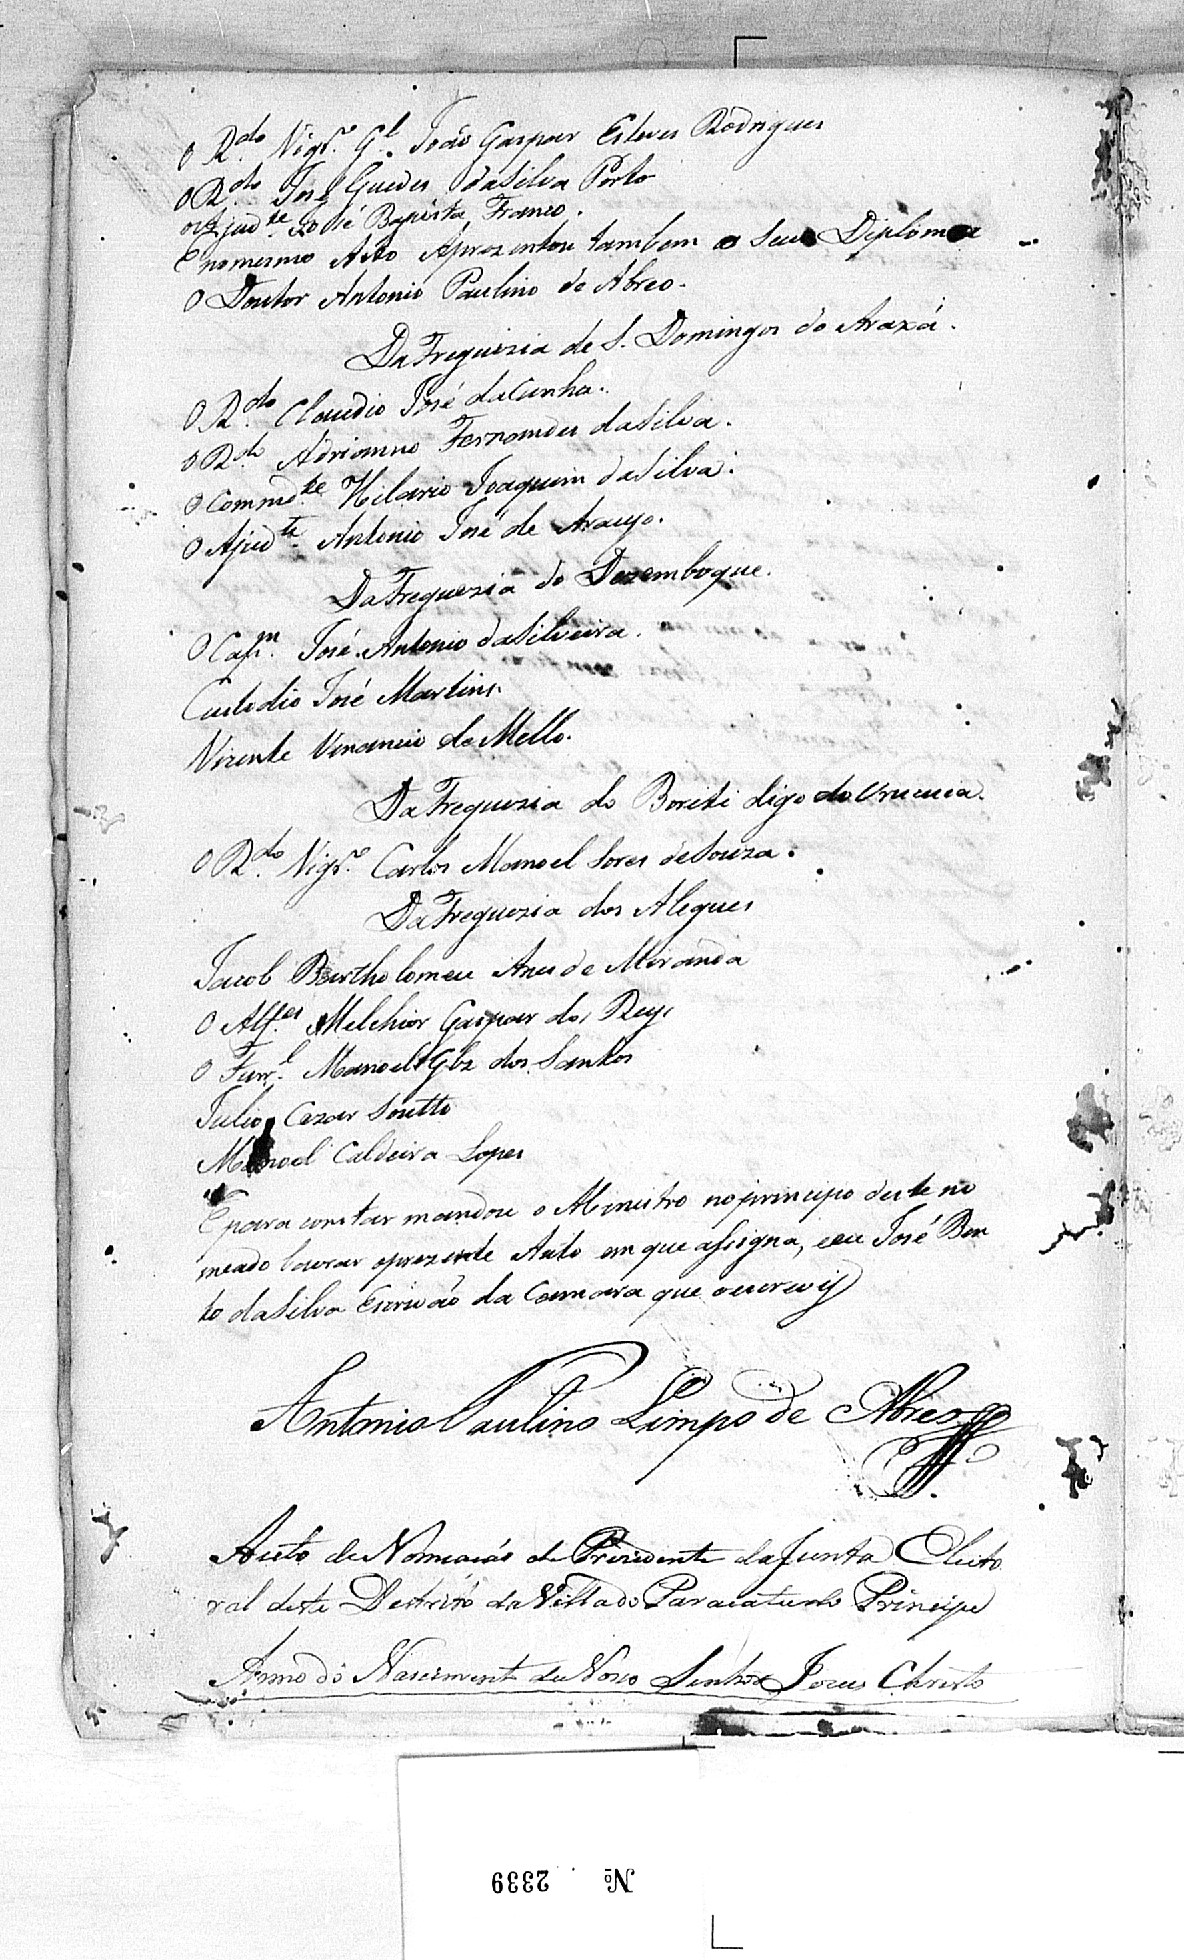 O R.do Vigr.o G.l João Gaspar Esteves Rodrigues
O R.do José Guedes da Silva Porto
o Ajud.te José Baptista Franco.
E nomesmo Acto Aprezentou tambem o Seu Diploma
O Doutor Antonio Paulino de Abreo.
Da Freguezia de S. Domingos do Araxá.
O R.do Claudio José da Cunha.
O R.do Adrianno Fernandes da Silva.
O Comm.de Hilario Joaquim da Silva.
O Ajud.te Antonio José de Araujo.
Da Freguezia do Dezemboque.
O Cap.m José Antonio da Silveira.
Custodio José Martins.
Vicente Venancio de Mello.
Da Freguezia do Boriti digo do Urucuia.
O R.do Vigr.o Carlos Manoel Sores de Souza.
Da Freguezia dos Alegres
Jacob Bartholomeu Anes de Miranda
O Alf.es Melchior Gaspar dos Reys
O Furr.l Manoel Glz dos Santos
Julio Cezar Soutto
Manoel Caldeira Lopes
E para constar mandou o Ministro no principo deste no
meado lavrar o prezente Auto em que assigna, e eu José Ben
to da Silva Escrivão da Camara que o escrevij
Antonio Paulino Limpo de Abreo
Auto de Nomeacão de Prezidente da Junta Eleito
ral deste Destrito da Villa do Paracatu do Principe
Anno do Nascimento de Nosso Senhor Jezus Christo
Nº 2339